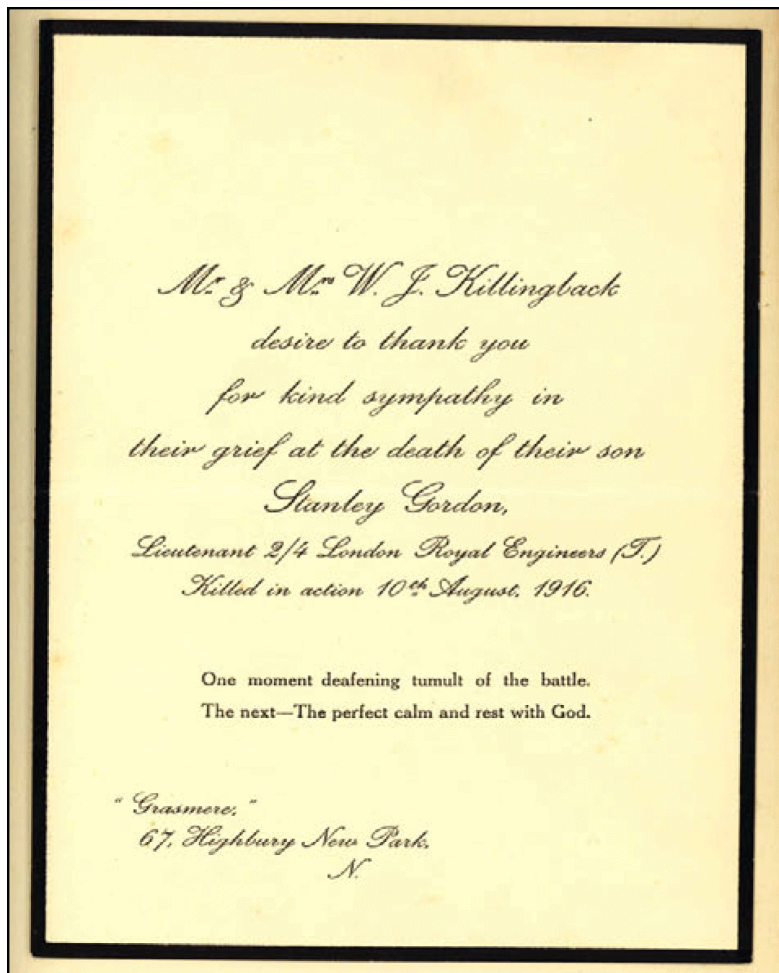 Mr & Mrs W. J. Killingback
desire to thank you
for kind sympathy in
their grief at the death of their son
Stanley Gordon,
Lieutenant 2/4 London Royal Engineers (T.)
Killed in action 10th August. 1916.
One moment deafening tumult of the battle.
The next—The perfect calm and rest with God.
"Grasmere,"
67, Highbury New Park,
N.